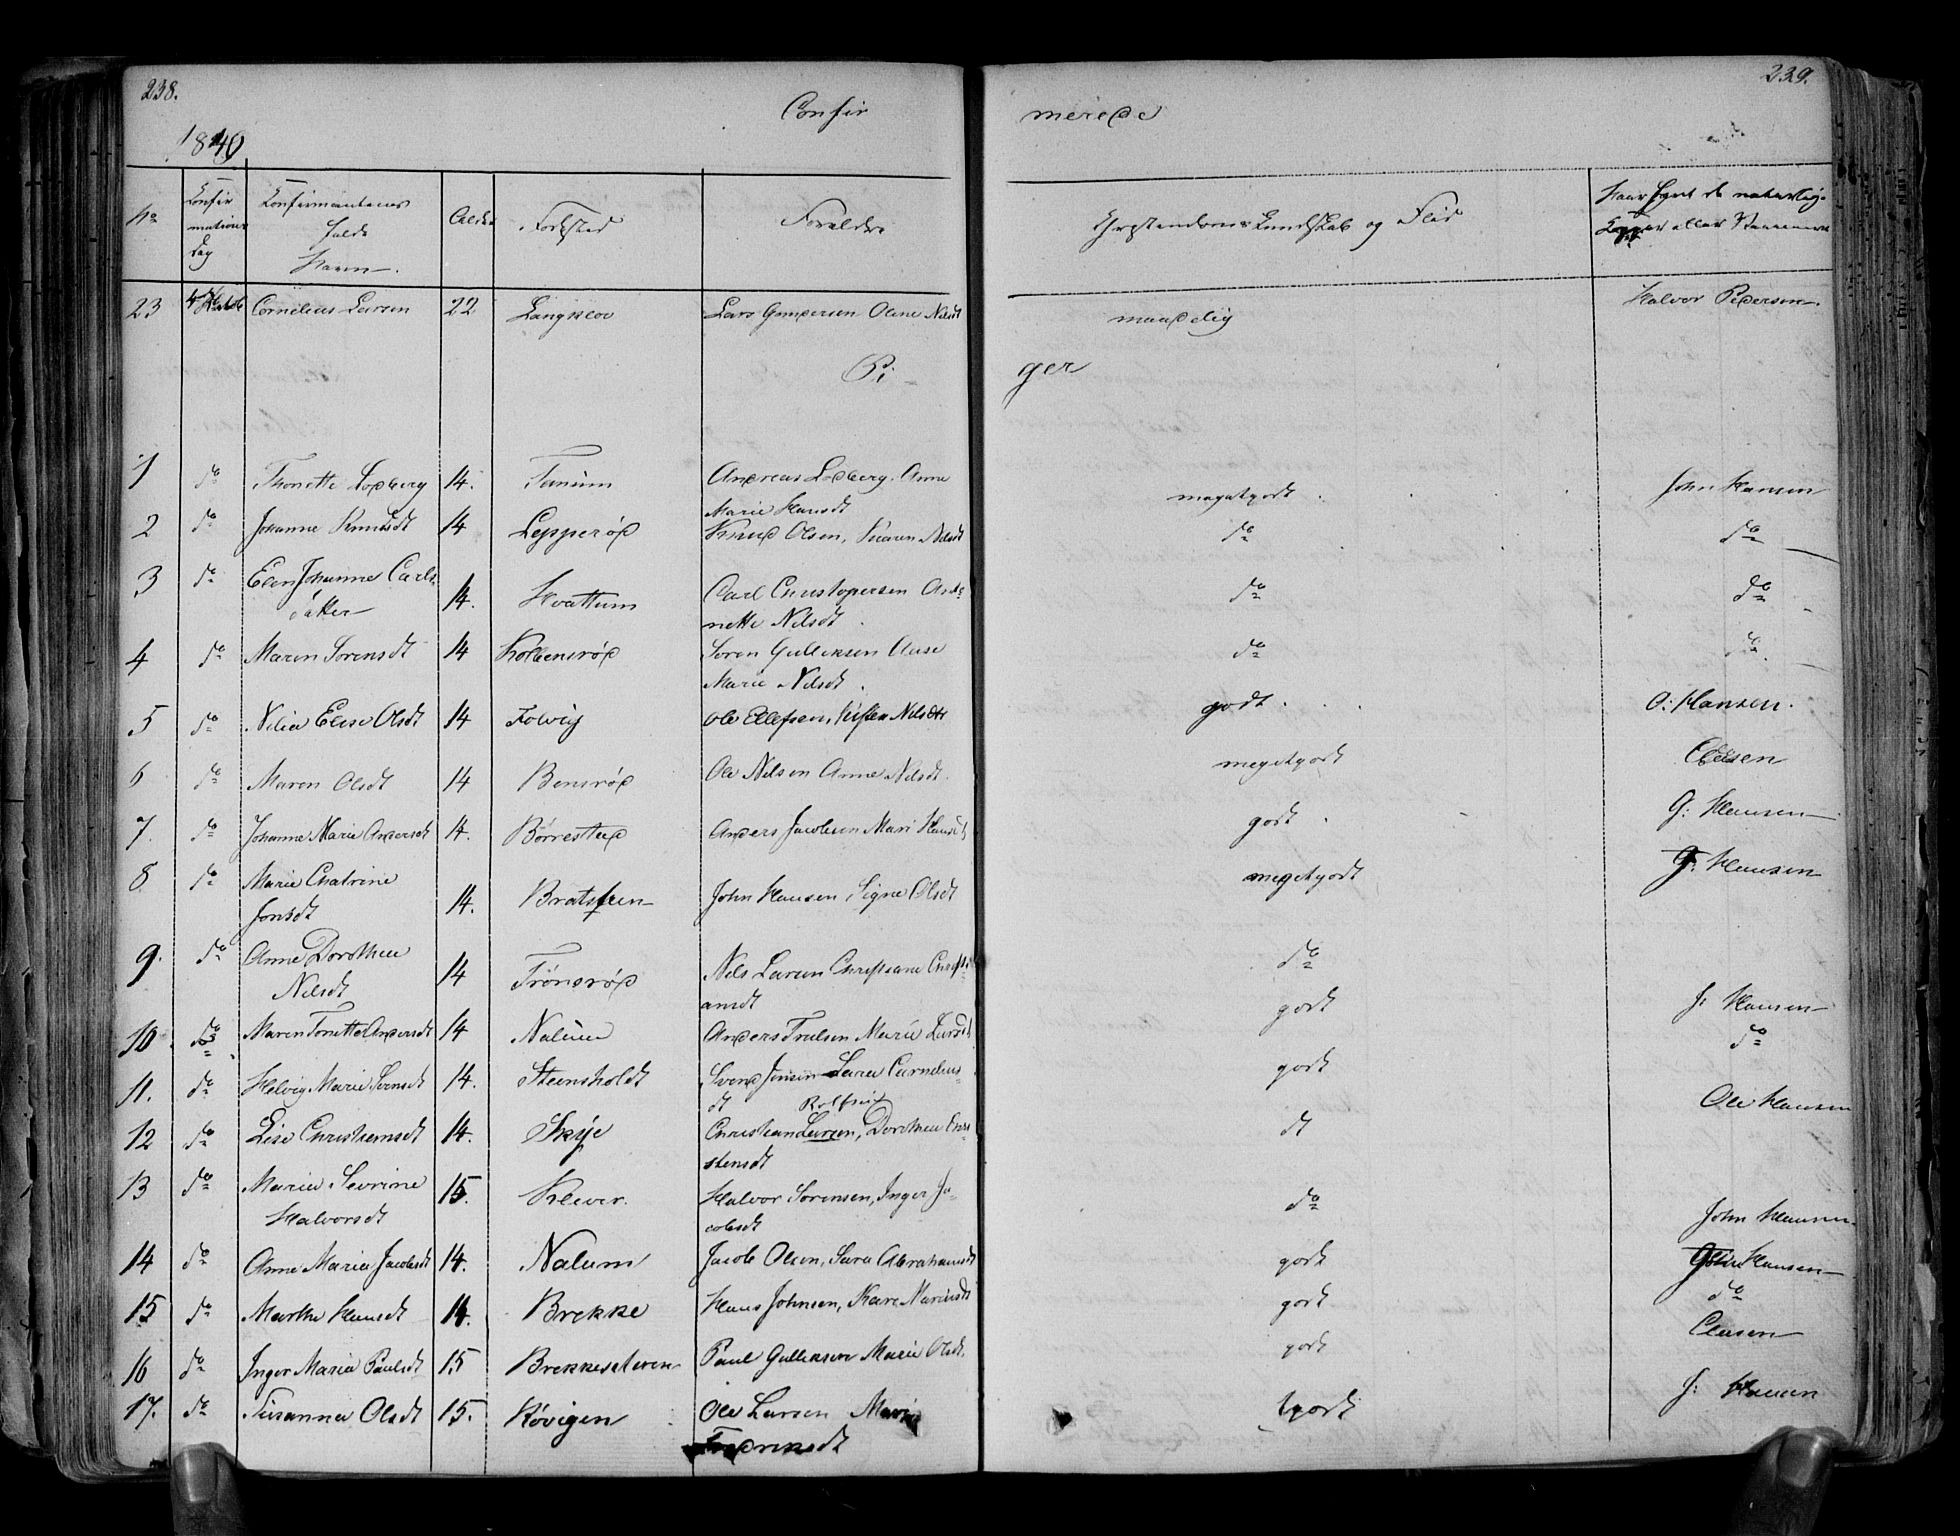 238.
Confir
merede
239.
1840
No
Confir
mations
Dag
Confirmantens
fulde
Navn
Alder
Fødested
Forældre
Christendoms Kundskab og Flid
Naar havt de naturlige
Kopper eller Vaccineret
23 Cornelius Larsen 22 Langskov Lars Gundersen Oline Nilsdt maadelig Halvor Pedersen
Pi-
ger
1 do Thonette Lodberg 14. Tanum Andreas Lodberg. Anne
Marie Hansdt megetgodt John Hansen
2 do Johanne Knudsdt 14 Lepperød Knud Olsen, Maren Nilsdt do do
3 do Elen Johanne Carls-
datter 14. Hvattum Carl Christopersen Ande
nette Nilsdt do do
4 do Maren Sörensdt 14 Kolbensrød Sören Gulliksen Anne
Marie Nilsdt do do
5 do Nilia Elise Olsdt 14 Folvig Ole Ellefsen, Kirsten Nilsdtr godt O: Hansen.
6 do Maren Olsdt 14 Bensrød Ole Nilsen Anne Nilsdt. megetgodt Clasen
7. do Johanne Marie Andersdt 14. Børrestad Anders Jacobsen Mari Hansdt godt G: Hansen
8 do Marie Chatrine
Jonsdt 14. Bratsteen John Hansen, Signe Olsdt megetgodt J: Hansen
9. do Anne Dorothea
Nilsdt 14 Trönsrød Nils Larsen Christiane Christi
ansdt do
10 do Maren Tonette Andersdt 14 Nalum Anders Trulsen Marie Larsdt godt J: Hansen
11. do Helvig Marie Svensdt 14. Steensholdt Svend Jensen Sara Cornelius-
dt godt do
12 do Lise Christiansdt 14. Skije Rolfsen
Christian Larsen, Dorothea Chri
stensdt dt Ole Hansen
13 do Maria Sevrine
Halvorsdt 15. Klever. Halvor Sörensen, Inger Ja-
cobsdt do John Hansen
14 do Anne Maria Jacobsdt 14. Nalum Jacob Olsen, Sara Abrahamsdt godt John Hansen
15 do Marthe Hansdt 14. Brekke Hans Johnsen, Kare Mariusdt godt do
16 do Inger Maria Paulsdt 15 Brekkesteren Paul Gulliksen Marie Olsdt. godt Clasen
17. do Susanna Olsdt 15. Røvigen Ole Larsen Marie
Fredriksdt tgodt J: Hansen